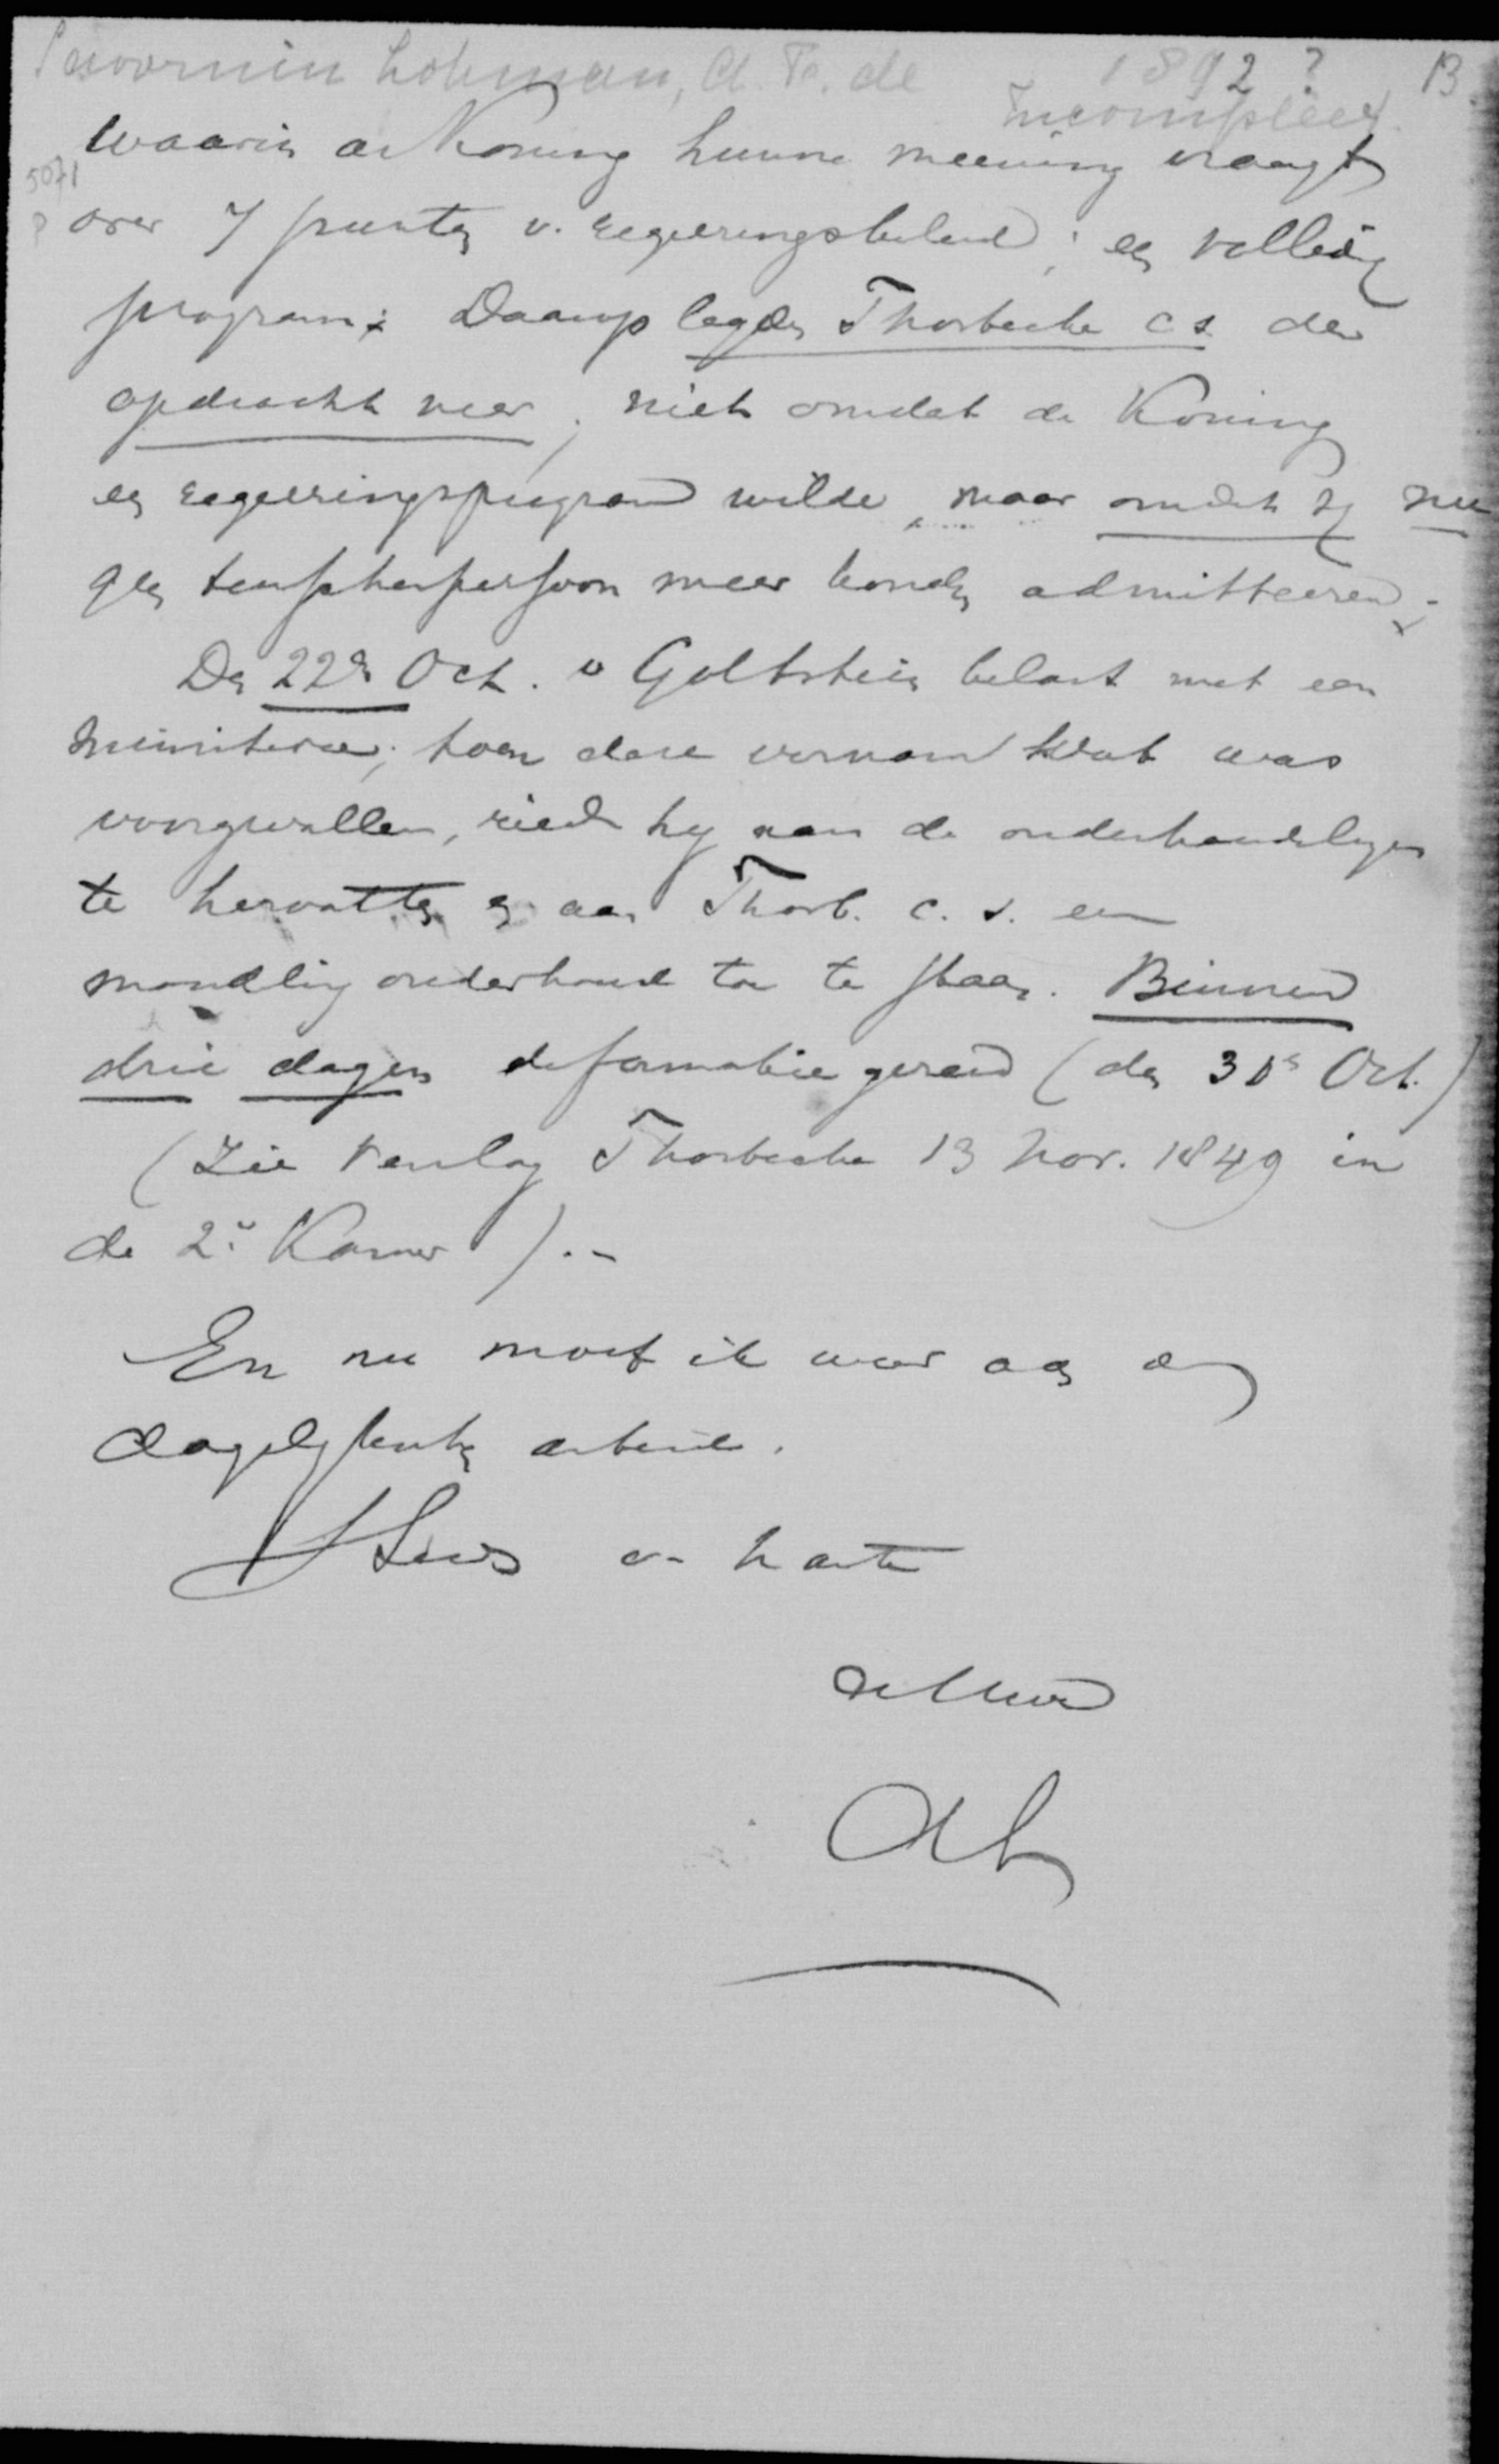 Savornin Lohman, A. F. de 1892? B.
Incompleet.
5071
waarin de Koning hunne meening vraagt
? over 7 punten v. regeeringsbeleid; een volledig
program; Daarop legden Thorbecke cs den
opdracht neer; niet omdat de Koning
een regeeringsprogram wilde, maar omdat zij nu
geen tusschenpersoon meer konden admitteeren;
Den 22n Oct. v Goltstein belast met een
ministerie; toen deze vernam wat was
voorgevallen, ried hij aan de onderhandelingen
te hervatten en aan Thorb. c. s. een
mondeling onderhoud toe te staan. Binnen
drie dagen de formatie gereed (den 30n Oct.)
(Zie verslag Thorbecke 13 Nov. 1849 in
de 2e Kamer).-
En nu moet ik weer aan den
dagelijkschen arbeid.
t.t. van harte
de Uwe
AL